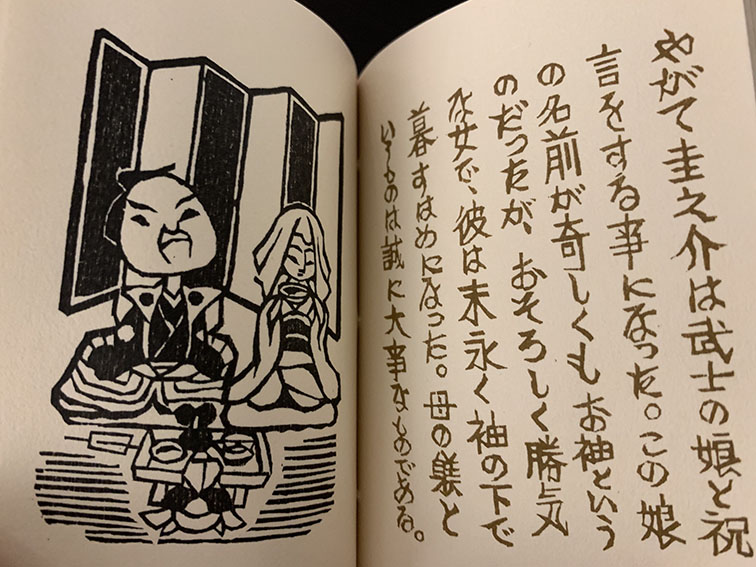 やがて圭之介は武士の娘と祝
言をする事になった。この娘
の名前が奇しくもお袖という
のだったが、おそろしく勝気
な女で、彼は末永く袖の下で
暮すはめになった。母の躾と
いうものは誠に大事なものである。